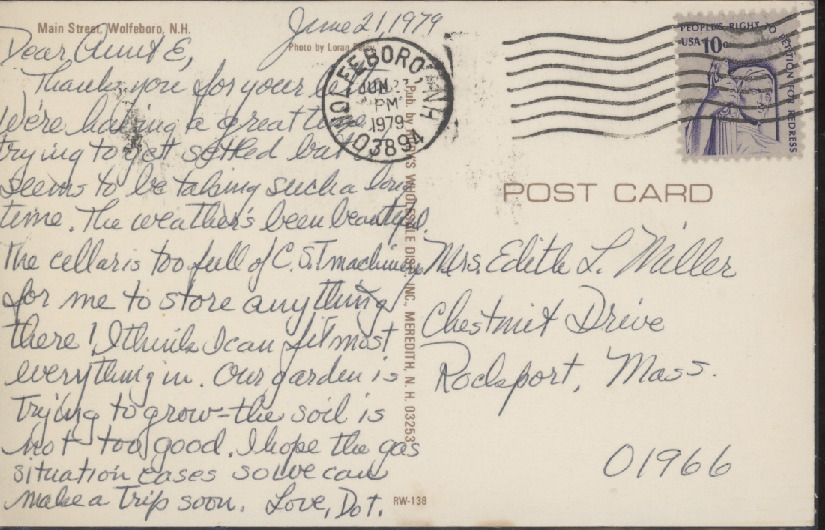 Main Street, Wolfeboro, N.H.
Photo by Loran
June 21, 1979
Dear Aunt E,
Thank you for your
We're having a great time
trying to get settled but
seems to be taking such a long
time. The weather's been beautiful.
The cellar is too full of C.S.T machinery
for me to store anything
there! I think I can fit most
everything in. Our garden is
trying to grow - the soil is
not too good. I hope the gas
situation eases so we can
make a trip soon. Love, Dot.
RW-138
WOLFEBORO, NH
JUN 23
PM
1979
03894
PEOPLE'S RIGHT TO PETITION FOR REDRESS
USA 10c
POST CARD
Mrs. Edith L. Willer
Chestnut Drive
Rockport, Mass.
01966
Pub. by WHOLESALE DIST. INC., MEREDITH, N. H. 03253